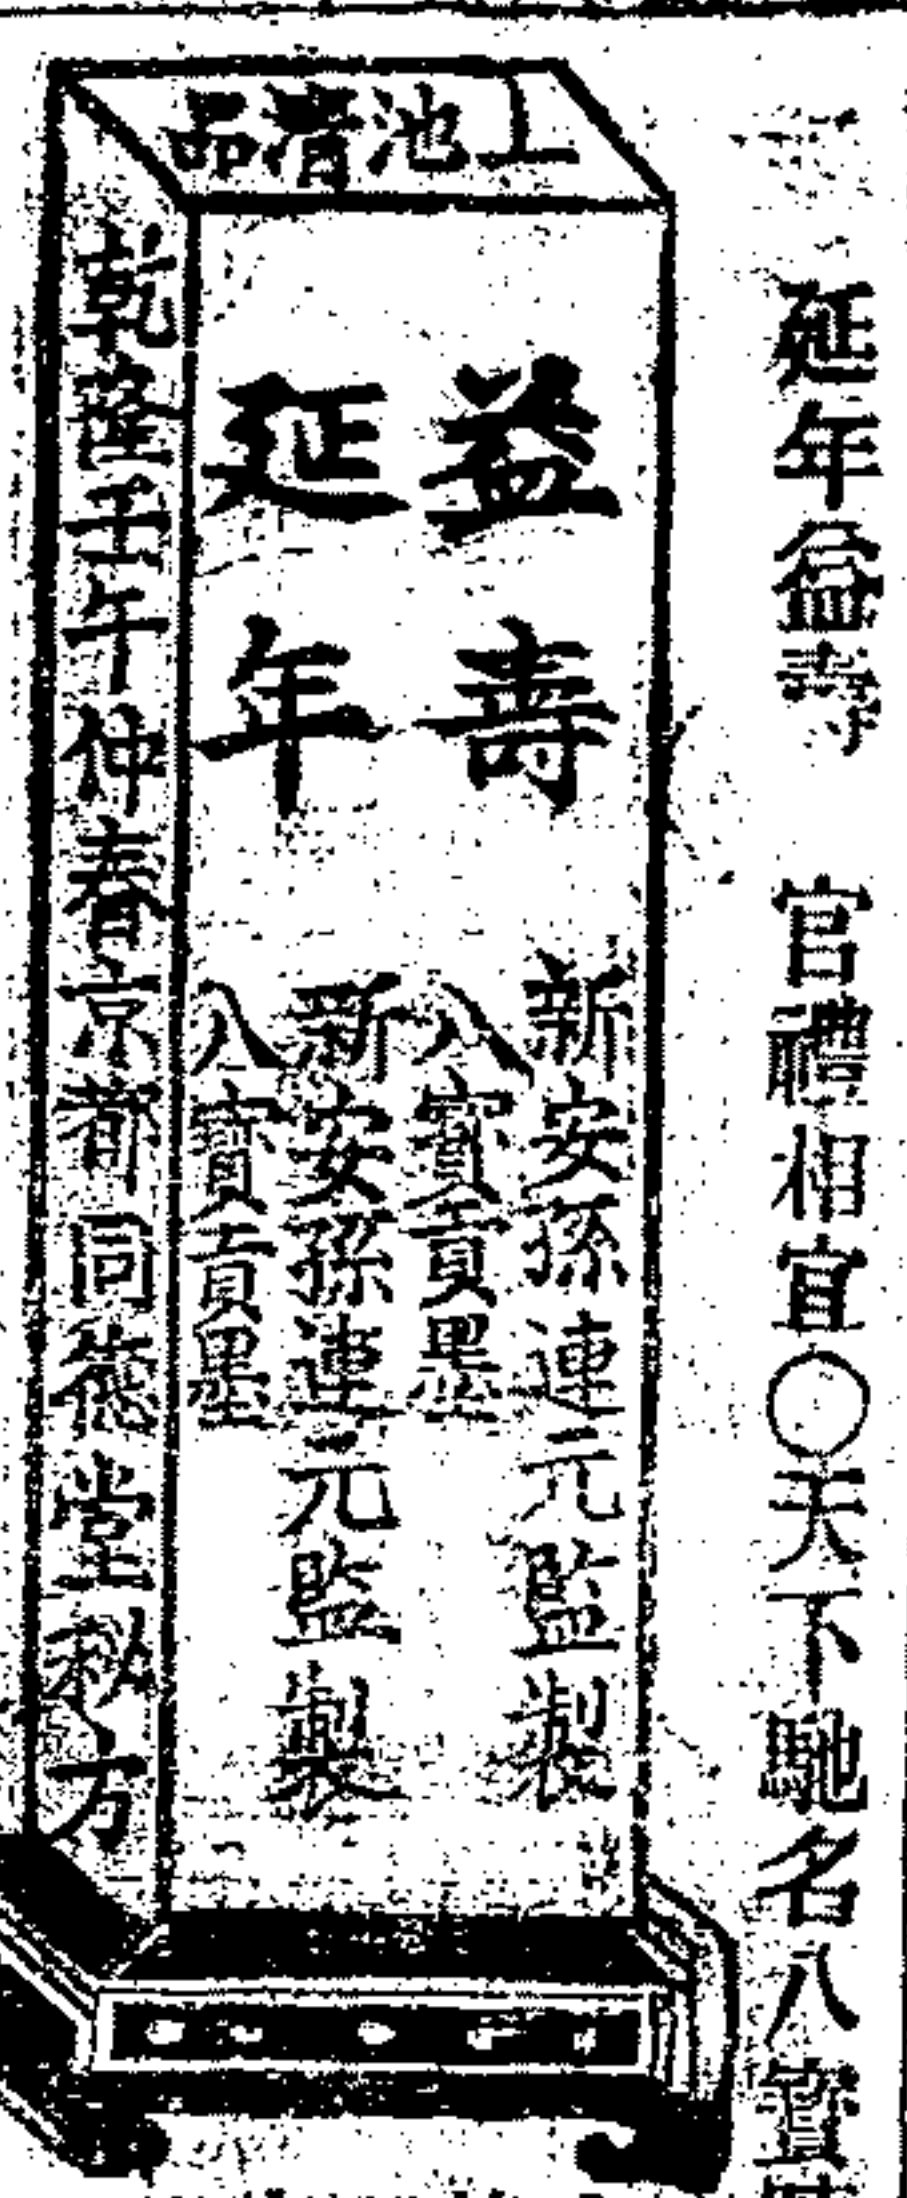 延年益壽 官禮相宜〇天下馳名八寶
上池清品
益壽
延年
新安孫連元監製
八寶貢墨
新安孫連元監製
八寶貢墨
乾隆壬午仲春京都同德堂秘方